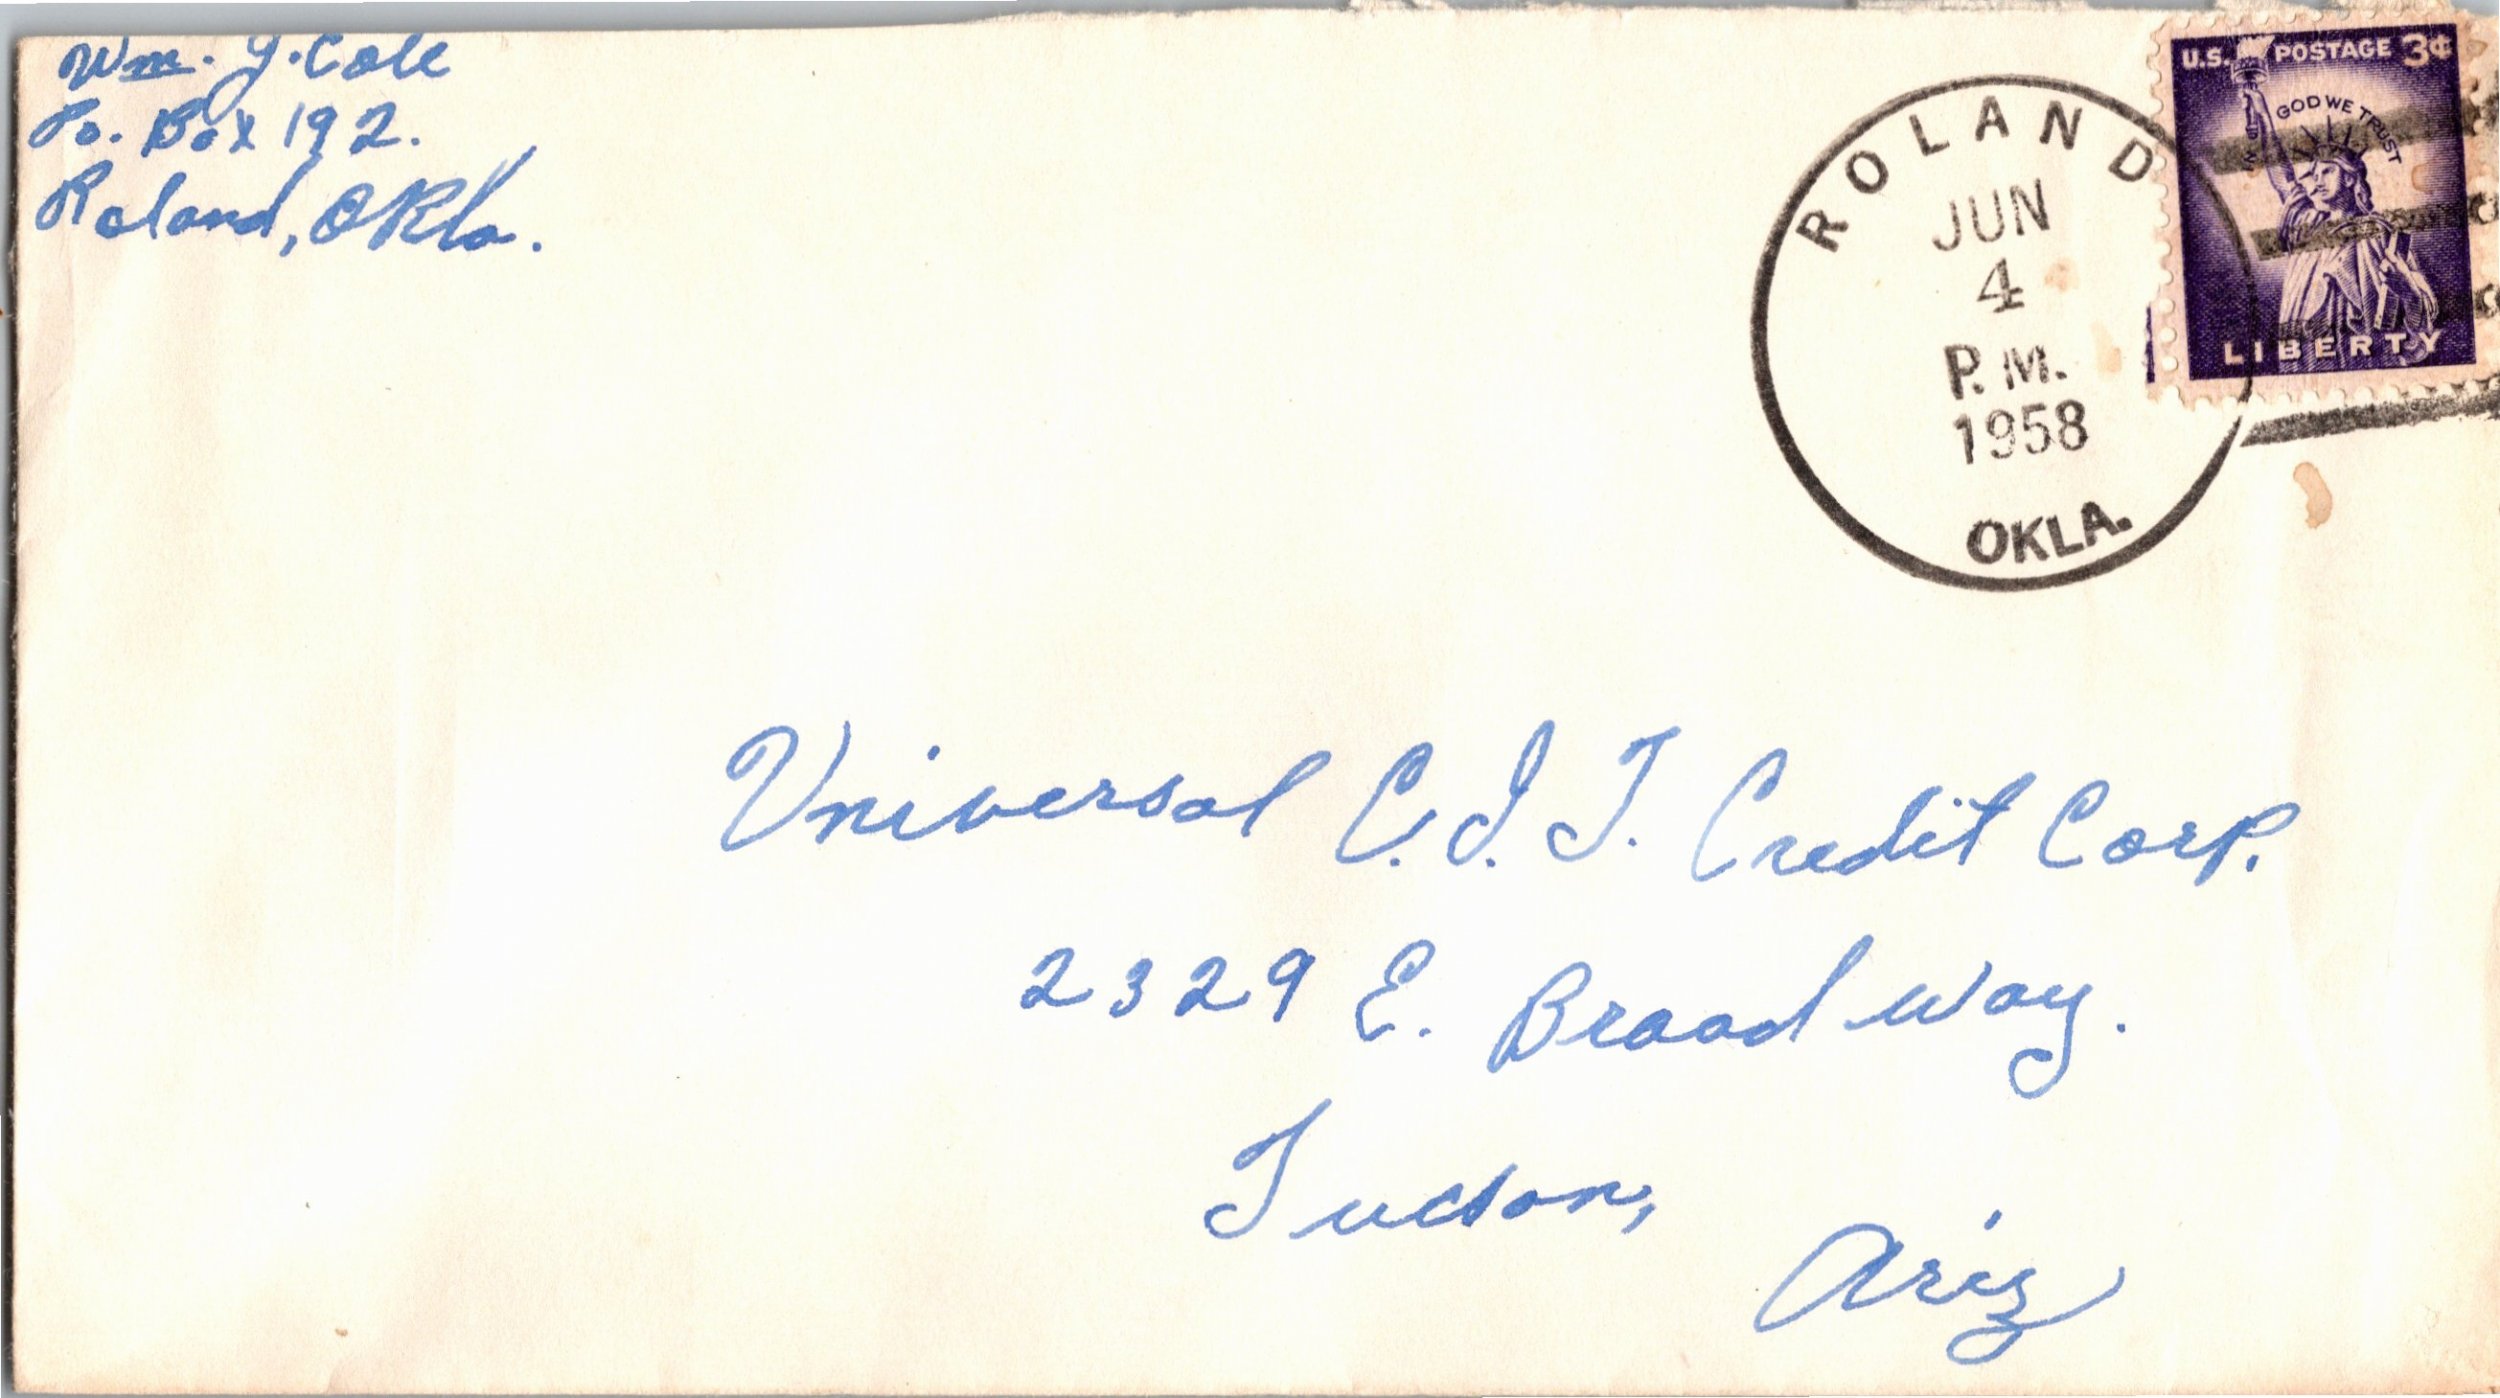 Wm. J. Cole
Po. Box 192.
Roland, Okla.
ROLAND
JUN
4
P.M.
1958
OKLA.
U.S. POSTAGE 3¢
IN GOD WE TRUST
LIBERTY
Universal C.I.T. Credit Corp.
2329 E. Broadway.
Tucson,
Ariz